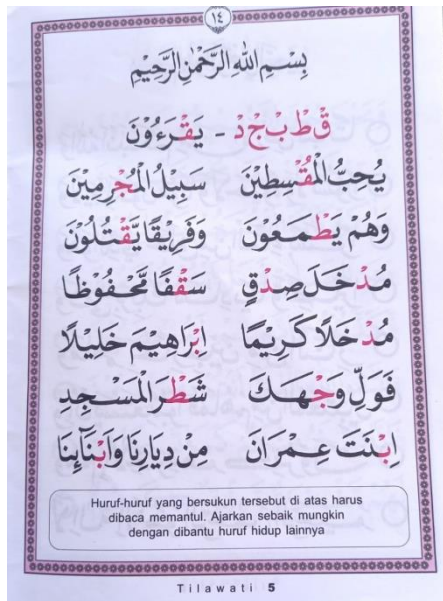 ١٤
بِسْمِ اللهِ الرَّحْمٰنِ الرَّحِيْمِ
قْ طْ بْ جْ دْ - يَقْرَءُوْنَ
يُحِبُّ الْمُقْسِطِيْنَ سَبِيْلُ الْمُجْرِمِيْنَ
وَهُمْ يَطْمَعُوْنَ وَفَرِيْقًا يَّقْتُلُوْنَ
مُدْخَلَ صِدْقٍ سَقْفًا مَّحْفُوْظًا
مُدْخَلًا كَرِيْمًا اِبْرَاهِيْمَ خَلِيْلًا
فَوَلِّ وَجْهَكَ شَطْرَ الْمَسْجِدِ
اِبْنَتَ عِمْرَانَ مِنْ دِيَارِنَا وَاَبْنَآئِنَا
Huruf-huruf yang bersukun tersebut di atas harus
dibaca memantul. Ajarkan sebaik mungkin
dengan dibantu huruf hidup lainnya
Tilawati 5